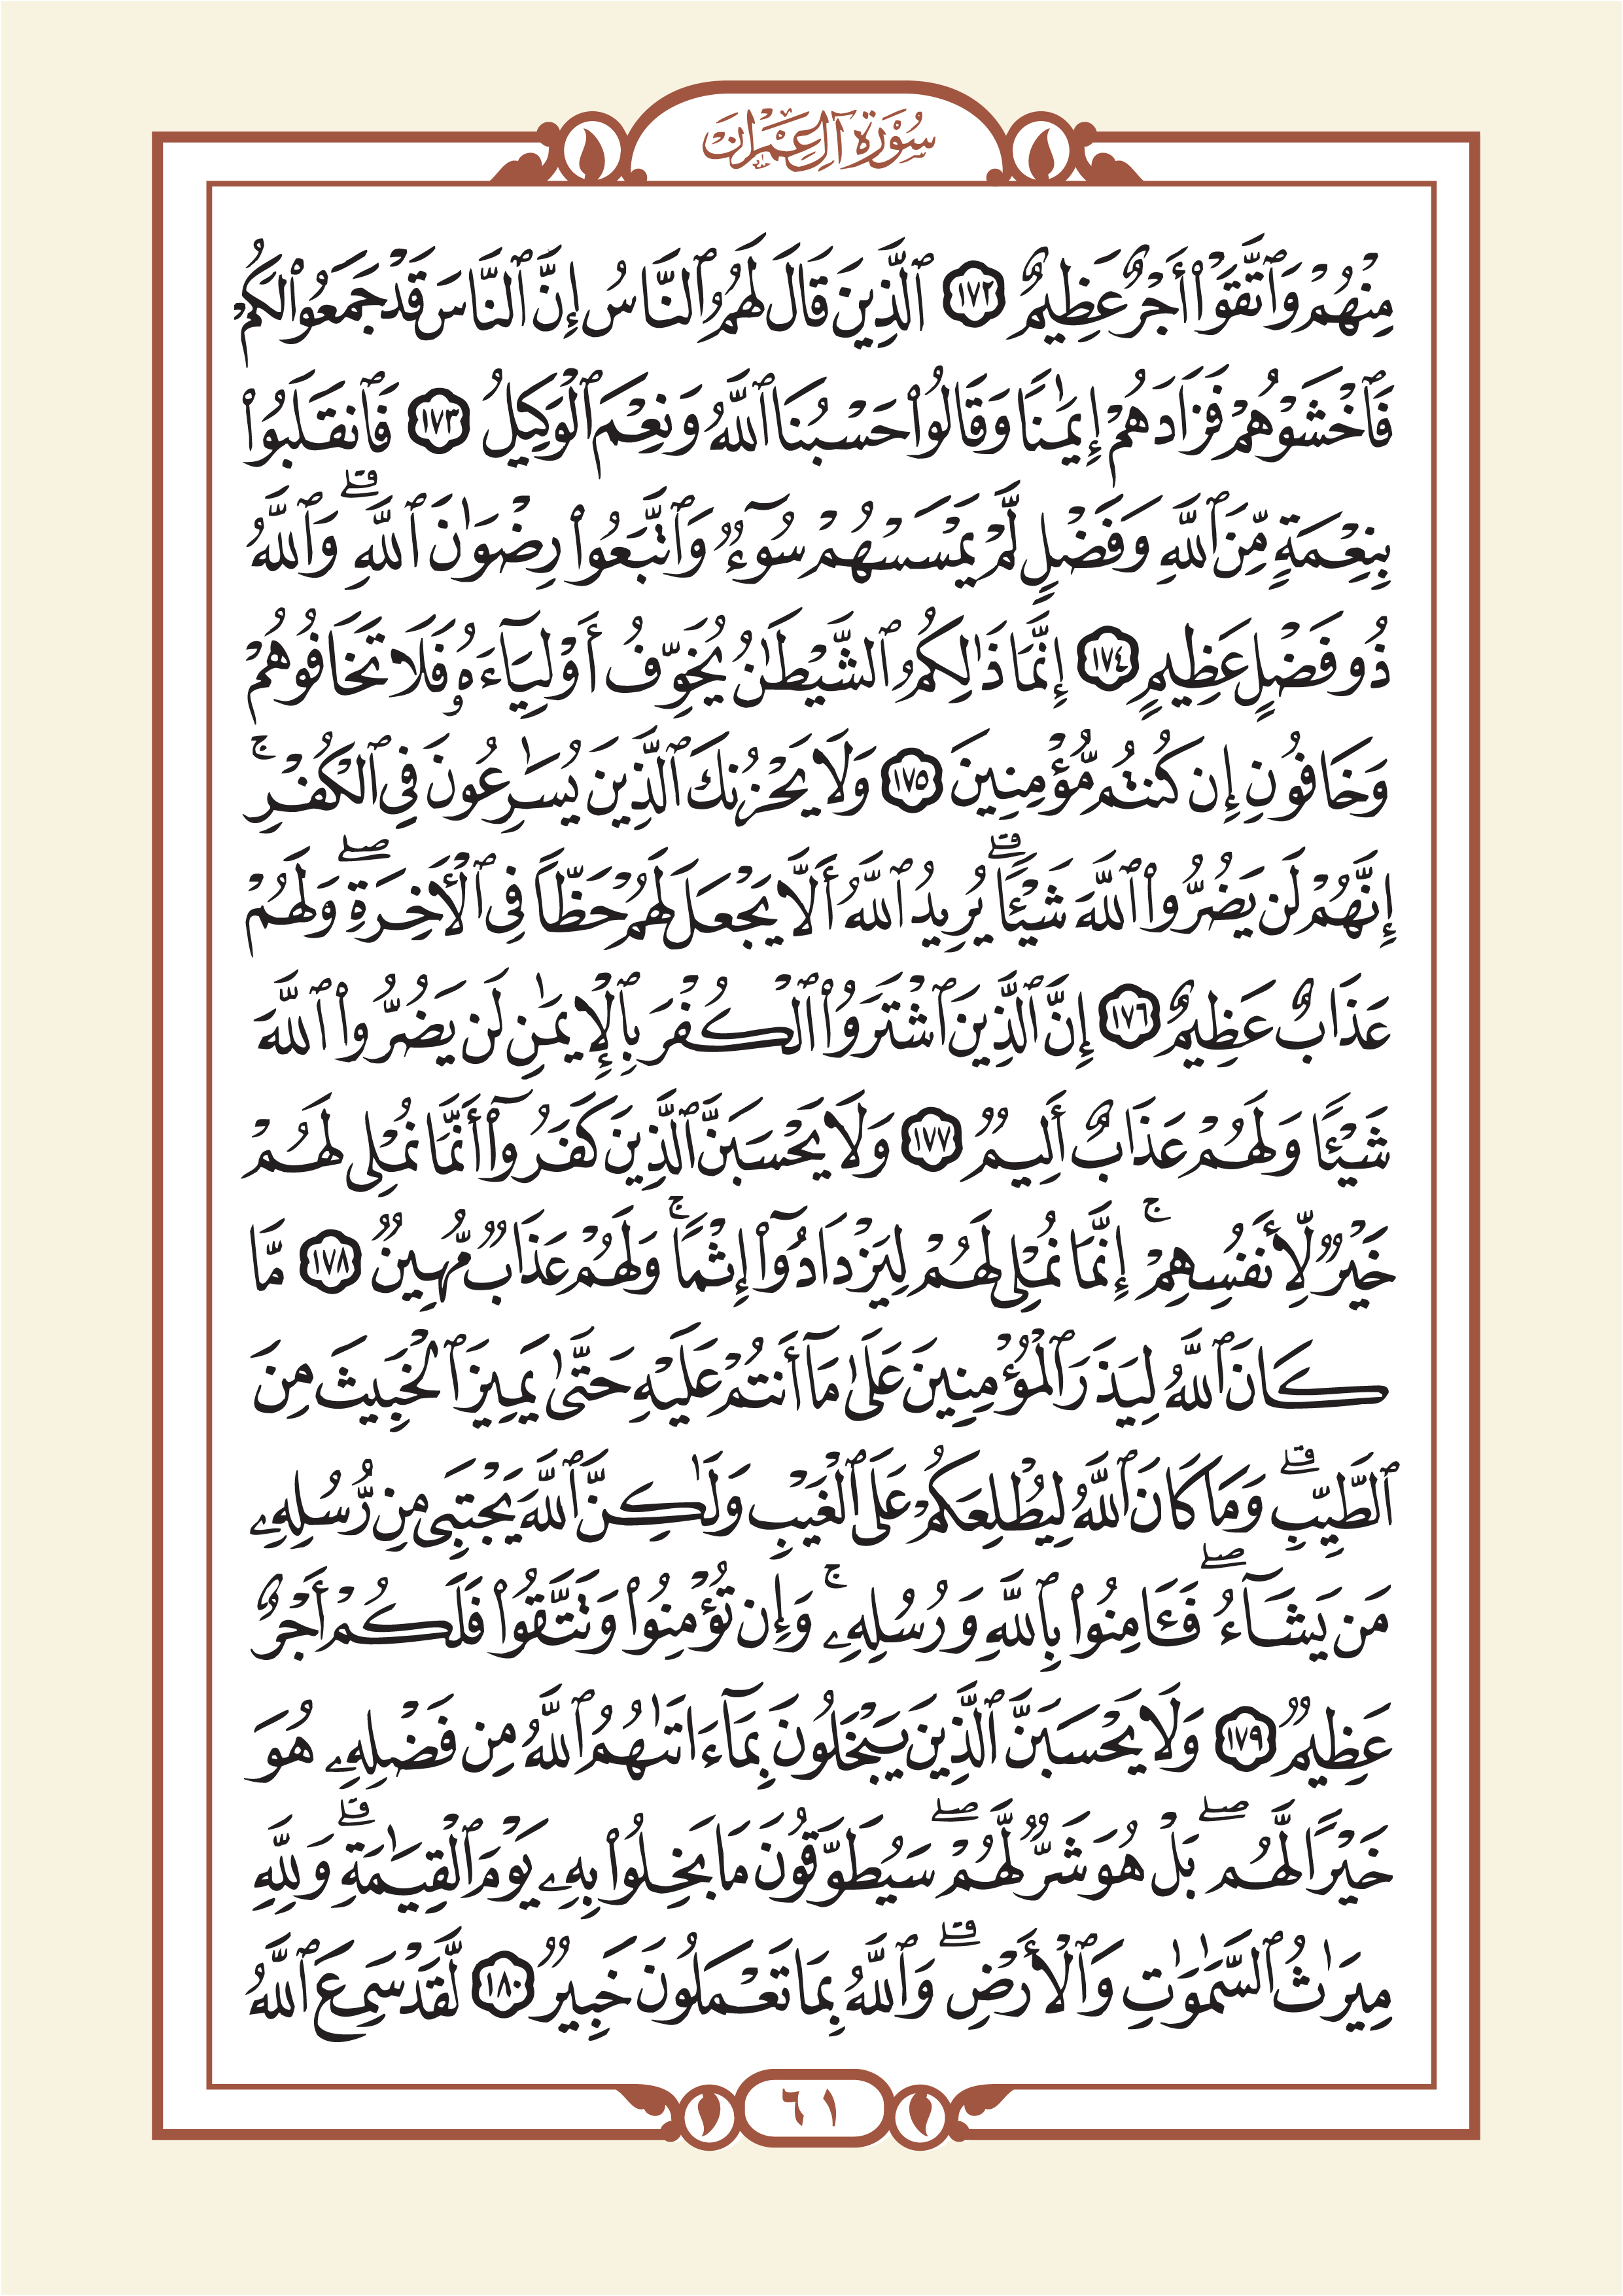 سُوْرَةُ آلِ عِمْرَان
مِنْهُمْ وَٱتَّقَوْا۟ أَجْرٌ عَظِيمٌ ١٧٢ ٱلَّذِينَ قَالَ لَهُمُ ٱلنَّاسُ إِنَّ ٱلنَّاسَ قَدْ جَمَعُوا۟ لَكُمْ
فَٱخْشَوْهُمْ فَزَادَهُمْ إِيمَٰنًا وَقَالُوا۟ حَسْبُنَا ٱللَّهُ وَنِعْمَ ٱلْوَكِيلُ ١٧٣ فَٱنقَلَبُوا۟
بِنِعْمَةٍ مِّنَ ٱللَّهِ وَفَضْلٍ لَّمْ يَمْسَسْهُمْ سُوٓءٌ وَٱتَّبَعُوا۟ رِضْوَٰنَ ٱللَّهِ ۗ وَٱللَّهُ
ذُو فَضْلٍ عَظِيمٍ ١٧٤ إِنَّمَا ذَٰلِكُمُ ٱلشَّيْطَٰنُ يُخَوِّفُ أَوْلِيَآءَهُۥ فَلَا تَخَافُوهُمْ
وَخَافُونِ إِن كُنتُم مُّؤْمِنِينَ ١٧٥ وَلَا يَحْزُنكَ ٱلَّذِينَ يُسَٰرِعُونَ فِي ٱلْكُفْرِ ۚ
إِنَّهُمْ لَن يَضُرُّوا۟ ٱللَّهَ شَيْـًٔا ۗ يُرِيدُ ٱللَّهُ أَلَّا يَجْعَلَ لَهُمْ حَظًّا فِى ٱلْأَخِرَةِ ۖ وَلَهُمْ
عَذَابٌ عَظِيمٌ ١٧٦ إِنَّ ٱلَّذِينَ ٱشْتَرَوُا۟ ٱلْكُفْرَ بِٱلْإِيمَٰنِ لَن يَضُرُّوا۟ ٱللَّهَ
شَيْـًٔا وَلَهُمْ عَذَابٌ أَلِيمٌ ١٧٧ وَلَا يَحْسَبَنَّ ٱلَّذِينَ كَفَرُوٓا۟ أَنَّمَا نُمْلِى لَهُمْ
خَيْرٌ لِّأَنفُسِهِمْ ۚ إِنَّمَا نُمْلِى لَهُمْ لِيَزْدَادُوٓا۟ إِثْمًا ۚ وَلَهُمْ عَذَابٌ مُّهِينٌ ١٧٨ مَّا
كَانَ ٱللَّهُ لِيَذَرَ ٱلْمُؤْمِنِينَ عَلَىٰ مَآ أَنتُمْ عَلَيْهِ حَتَّىٰ يَمِيزَ ٱلْخَبِيثَ مِنَ
ٱلطَّيِّبِ ۗ وَمَا كَانَ ٱللَّهُ لِيُطْلِعَكُمْ عَلَى ٱلْغَيْبِ وَلَٰكِنَّ ٱللَّهَ يَجْتَبِى مِن رُّسُلِهِۦ
مَن يَشَآءُ ۖ فَـَٔامِنُوا۟ بِٱللَّهِ وَرُسُلِهِۦ ۚ وَإِن تُؤْمِنُوا۟ وَتَتَّقُوا۟ فَلَكُمْ أَجْرٌ
عَظِيمٌ ١٧٩ وَلَا يَحْسَبَنَّ ٱلَّذِينَ يَبْخَلُونَ بِمَآ ءَاتَىٰهُمُ ٱللَّهُ مِن فَضْلِهِۦ هُوَ
خَيْرًا لَّهُم ۖ بَلْ هُوَ شَرٌّ لَّهُمْ ۖ سَيُطَوَّقُونَ مَا بَخِلُوا۟ بِهِۦ يَوْمَ ٱلْقِيَٰمَةِ ۗ وَلِلَّهِ
مِيرَٰثُ ٱلسَّمَٰوَٰتِ وَٱلْأَرْضِ ۗ وَٱللَّهُ بِمَا تَعْمَلُونَ خَبِيرٌ ١٨٠ لَّقَدْ سَمِعَ ٱللَّهُ
٦١